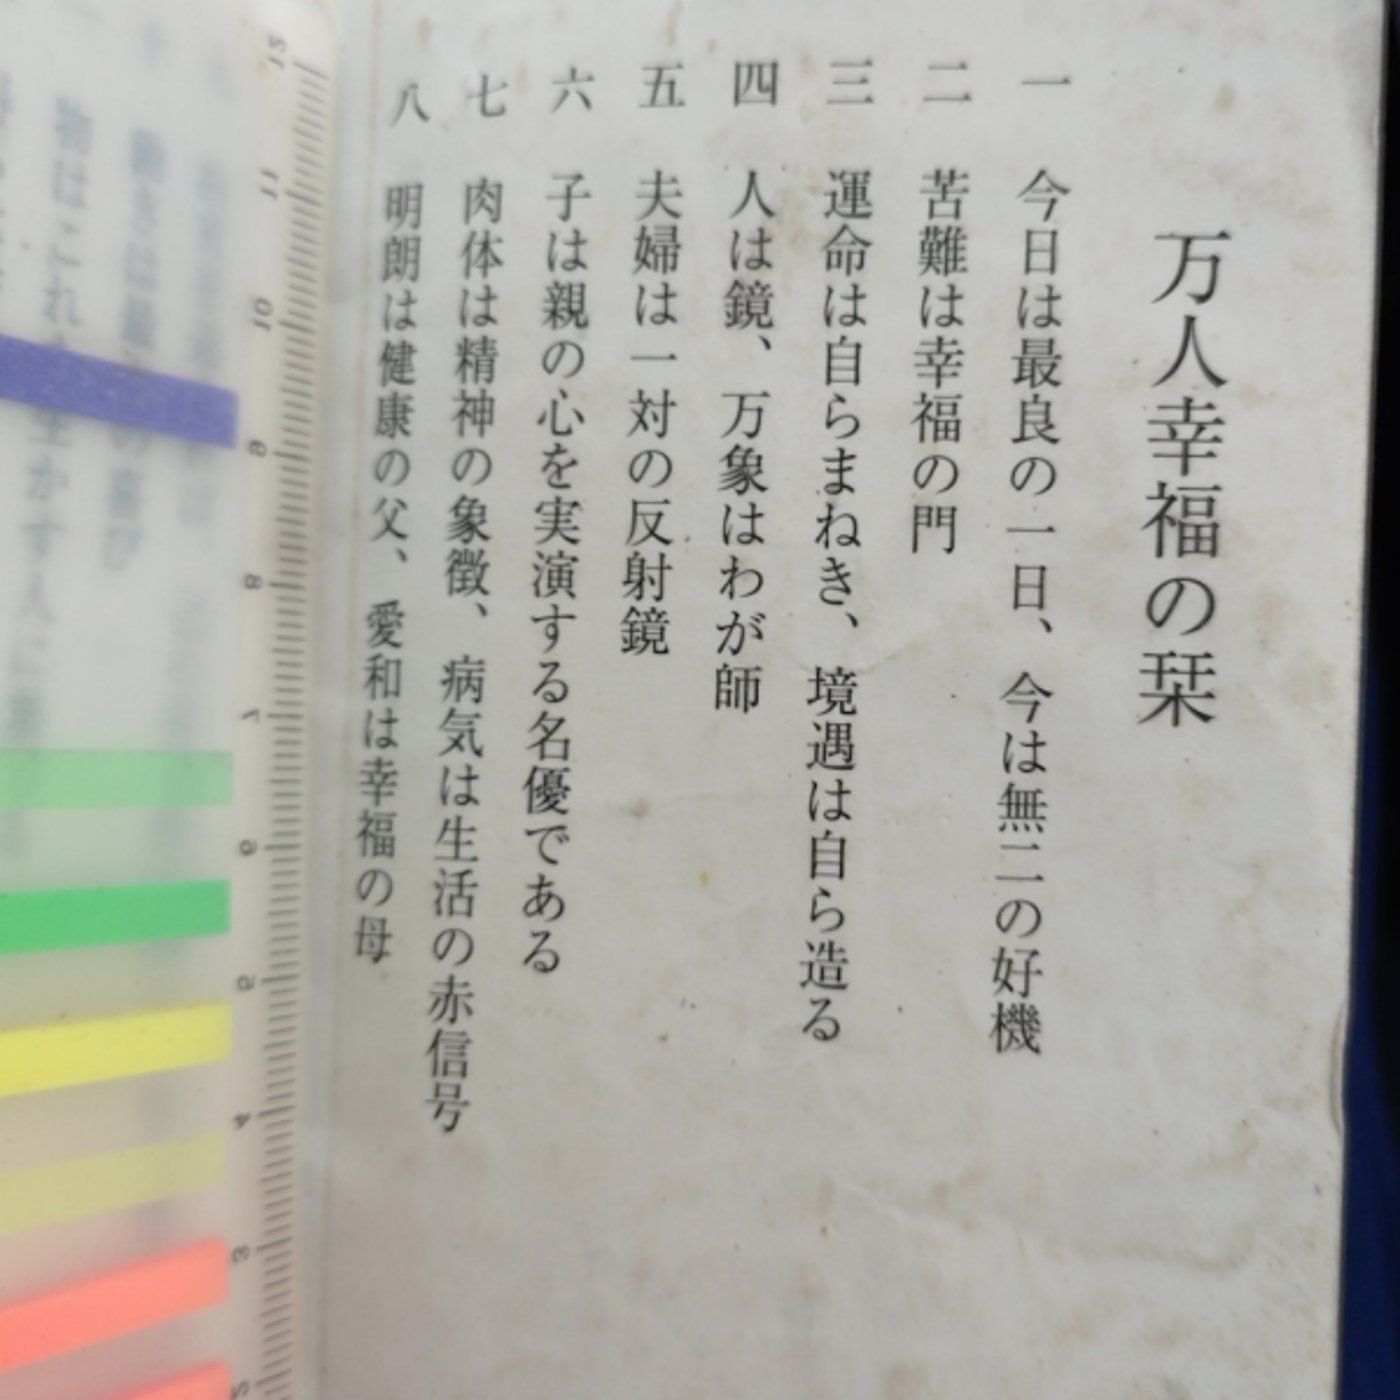 万人幸福の栞
一 今日は最良の一日、今は無二の好機
二 苦難は幸福の門
三 運命は自らまねき、境遇は自ら造る
四 人は鏡、万象はわが師
五 夫婦は一対の反射鏡
六 子は親の心を実演する名優である
七 肉体は精神の象徴、病気は生活の赤信号
八 明朗は健康の父、愛和は幸福の母
12
11
10
9
8
7
6
5
4
3
2
物はこれ
生かす人に